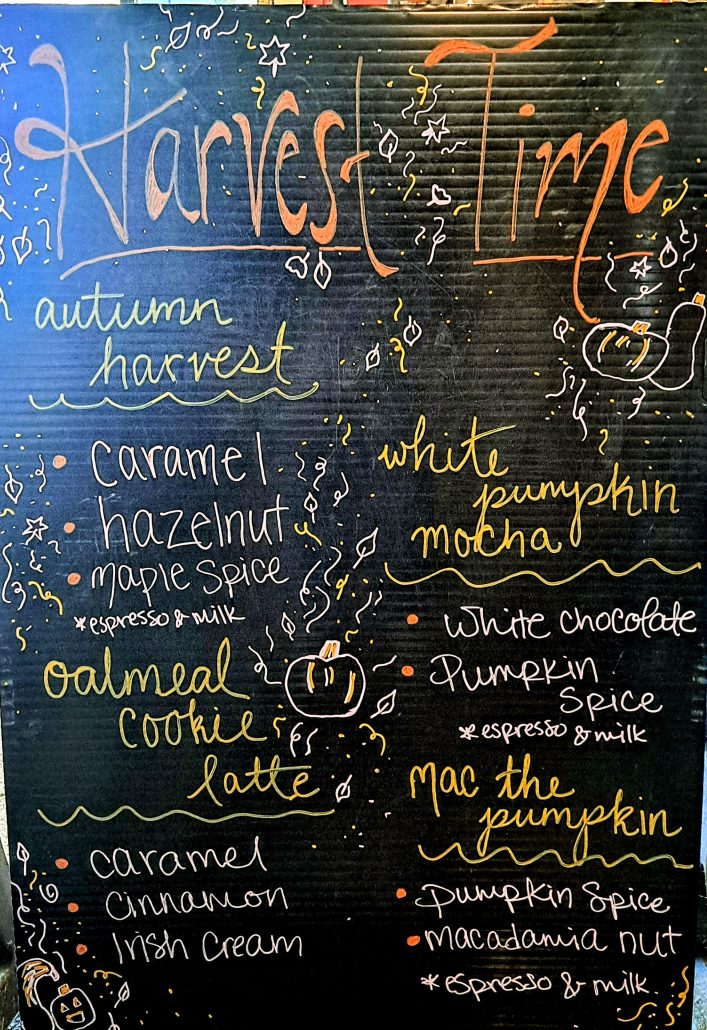 Harvest Time
autumn
harvest
• caramel
• hazelnut
• maple spice
*espresso & milk
oatmeal
cookie
latte
• caramel
• cinnamon
• Irish Cream
white
pumpkin
mocha
• white chocolate
• Pumpkin
Spice
*espresso & milk
mac the
pumpkin
• pumpkin spice
• macadamia nut
*espresso & milk